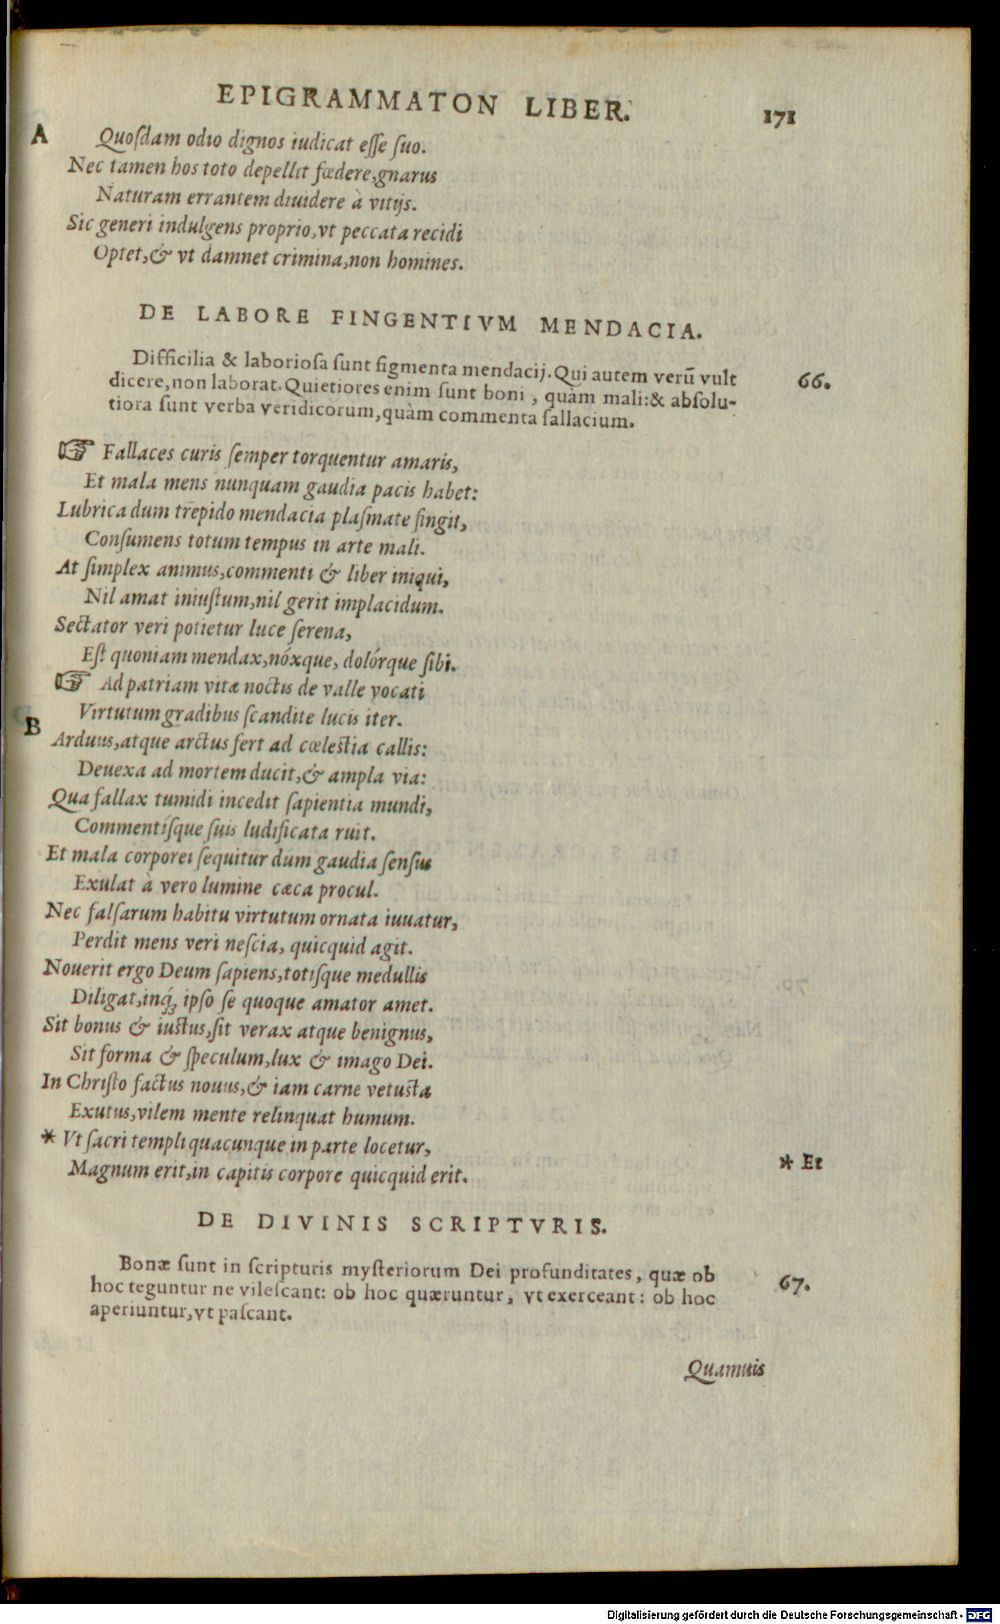 EPIGRAMMATON LIBER. 171
A Quoſdam odio dignos iudicat eſſe ſuo.
Nec tamen hos toto depellit fœdere,gnarus
Naturam errantem diuidere à vitijs.
Sic generi indulgens proprio,vt peccata recidi
Optet,& vt damnet crimina,non homines.
DE LABORE FINGENTIVM MENDACIA.
Difficilia & laborioſa ſunt figmenta mendacij. Qui autem verū vult 66.
dicere,non laborat. Quietiores enim ſunt boni, quàm mali:& abſolu-
tiora ſunt verba veridicorum,quàm commenta fallacium.
☞ Fallaces curis ſemper torquentur amaris,
Et mala mens nunquam gaudia pacis habet:
Lubrica dum trepido mendacia plaſmate fingit,
Conſumens totum tempus in arte mali.
At ſimplex animus,commenti & liber iniqui,
Nil amat iniuſtum,nil gerit implacidum.
Sectator veri potietur luce ſerena,
Eſt quoniam mendax,nóxque, dolórque ſibi.
☞ Ad patriam vitæ noctis de valle vocati
B Virtutum gradibus ſcandite lucis iter.
Arduus,atque arctus fert ad cœleſtia callis:
Deuexa ad mortem ducit,& ampla via:
Qua fallax tumidi incedit ſapientia mundi,
Commentíſque ſuis ludificata ruit.
Et mala corporei ſequitur dum gaudia ſenſus
Exulat à vero lumine cæca procul.
Nec falſarum habitu virtutum ornata iuuatur,
Perdit mens veri neſcia, quicquid agit.
Nouerit ergo Deum ſapiens,totiſque medullis
Diligat,inq́; ipſo ſe quoque amator amet.
Sit bonus & iuſtus,ſit verax atque benignus,
Sit forma & ſpeculum,lux & imago Dei.
In Chriſto factus nouus,& iam carne vetuſta
Exutus,vilem mente relinquat humum.
* Vt ſacri templi quacunque in parte locetur,
Magnum erit,in capitis corpore quicquid erit. * Et
DE DIVINIS SCRIPTVRIS.
Bonæ ſunt in ſcripturis myſteriorum Dei profunditates, quæ ob 67.
hoc teguntur ne vileſcant: ob hoc quæruntur, vt exerceant: ob hoc
aperiuntur,vt paſcant.
Quamuis
Digitalisierung gefördert durch die Deutsche Forschungsgemeinschaft - DFG